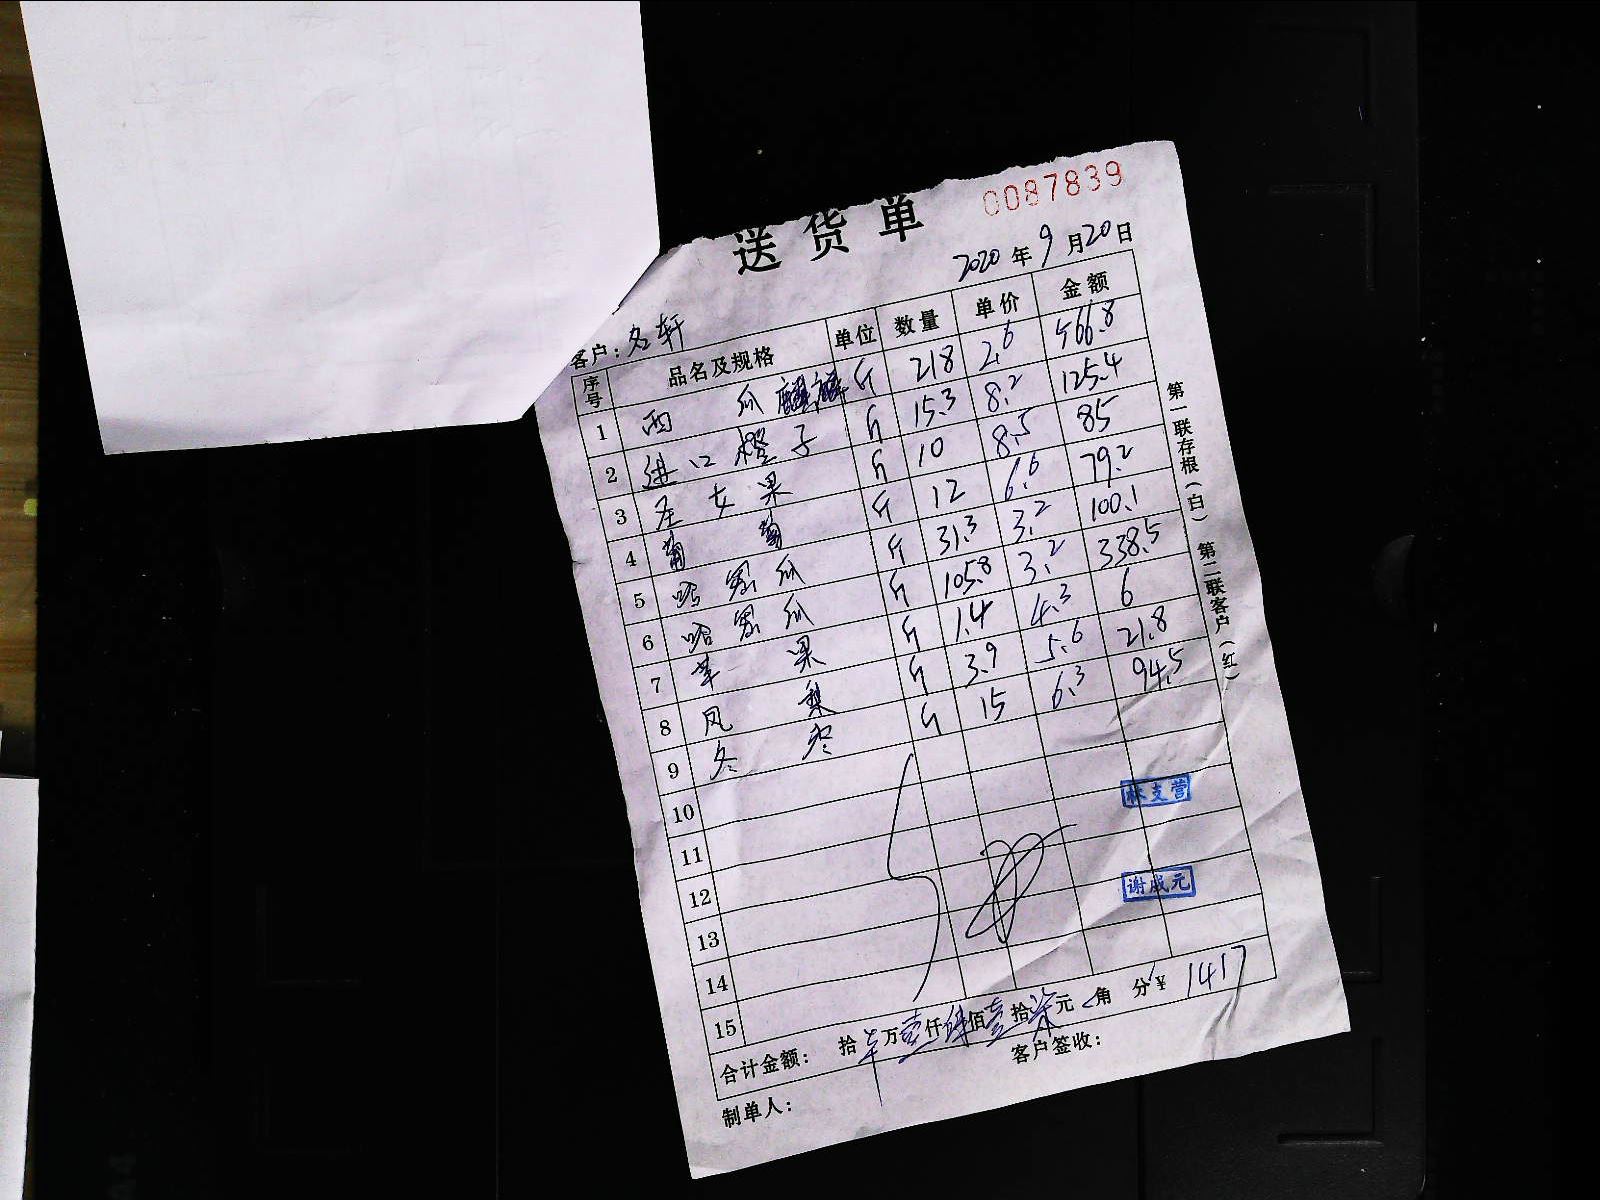 送货单 0087839
2020年9月20日
客户：名轩
序号 品名及规格 单位 数量 单价 金额
1 西瓜麒麟 斤 218 2.6 566.8
2 进口橙子 斤 15.3 8.2 125.4
3 圣女果 斤 10 8.5 85
4 葡萄 斤 12 6.6 79.2
5 哈密瓜 斤 31.3 3.2 100.1
6 哈密瓜 斤 105.8 3.2 338.5
7 苹果 斤 1.4 4.3 6
8 凤梨 斤 3.9 5.6 21.8
9 冬枣 斤 15 6.3 94.5
10
11
12
13
14
15
林支营
谢成元
合计金额： 拾 万壹仟肆佰壹拾柒元 角 分 ¥ 1417
制单人： 客户签收：
第一联存根（白） 第二联客户（红）